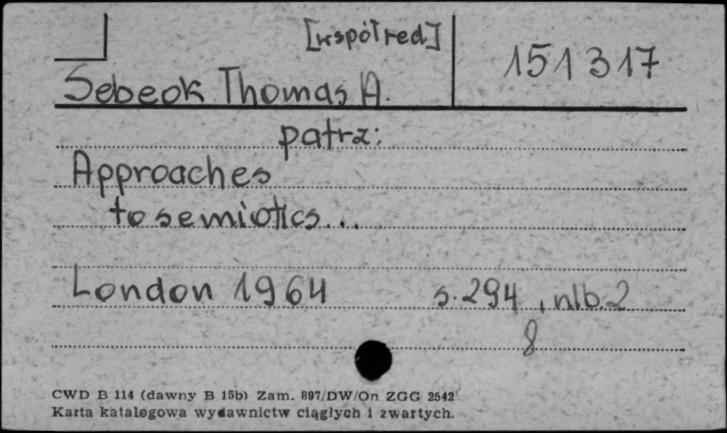 [współred]
151317
Sebeok Thomas A.
patrz:
Approaches
to semiotics...
London 1964 s.294, nlb.2
8
CWD B 114 (dawny B 15b) Zam. 897/DW/On ZGG 2542
Karta katalogowa wydawnictw ciągłych i zwartych.